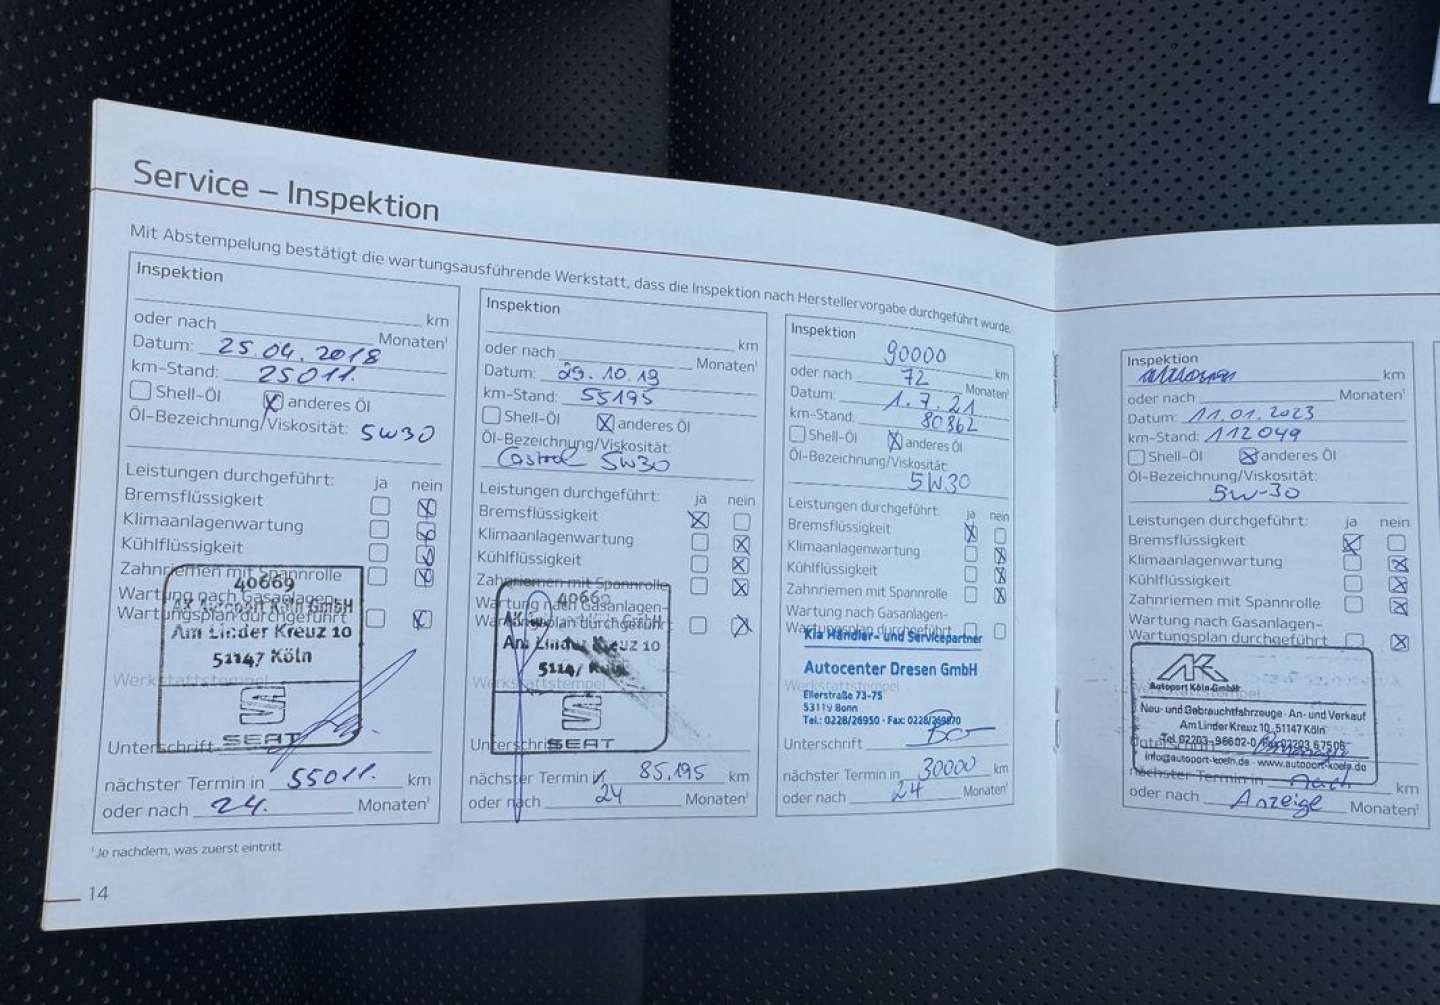 Service – Inspektion
Mit Abstempelung bestätigt die wartungsausführende Werkstatt, dass die Inspektion nach Herstellervorgabe durchgeführt wurde.
Inspektion
km
oder nach Monaten¹
Datum: 25.04.2018
km-Stand: 25011.
Shell-Öl anderes Öl
Öl-Bezeichnung/Viskosität: 5W30
Leistungen durchgeführt: ja nein
Bremsflüssigkeit
Klimaanlagenwartung
Kühlflüssigkeit
Zahnriemen mit Spannrolle
40669
Wartung nach Gasanlagen-
AK Autoport Köln GmbH
Wartungsplan durchgeführt
Am Linder Kreuz 10
51147 Köln
Werkstattstempel
SEAT
Unterschrift
nächster Termin in 55011. km
oder nach 24. Monaten¹
Inspektion
km
oder nach Monaten¹
Datum: 29.10.19
km-Stand: 55195
Shell-Öl anderes Öl
Öl-Bezeichnung/Viskosität:
Castrol 5W30
Leistungen durchgeführt: ja nein
Bremsflüssigkeit
Klimaanlagenwartung
Kühlflüssigkeit
Zahnriemen mit Spannrolle
40669
Wartung nach Gasanlagen-
Wartungsplan durchgeführt
Am Linder Kreuz 10
51147 Köln
Werkstattstempel
SEAT
Unterschrift
nächster Termin in 85.195 km
oder nach 24 Monaten¹
Inspektion
90000 km
oder nach 72 Monaten¹
Datum: 1.7.21
km-Stand: 80862
Shell-Öl anderes Öl
Öl-Bezeichnung/Viskosität:
5W30
Leistungen durchgeführt: ja nein
Bremsflüssigkeit
Klimaanlagenwartung
Kühlflüssigkeit
Zahnriemen mit Spannrolle
Wartung nach Gasanlagen-
Wartungsplan durchgeführt
Kia Händler- und Servicepartner
Autocenter Dresen GmbH
Werkstattstempel
Ellerstraße 73-75
53119 Bonn
Tel.: 0228/26950 · Fax: 0228/269870
Unterschrift
nächster Termin in 30000 km
oder nach 24 Monaten¹
Inspektion
km
oder nach Monaten¹
Datum: 11.01.2023
km-Stand: 112049
Shell-Öl anderes Öl
Öl-Bezeichnung/Viskosität:
5W-30
Leistungen durchgeführt: ja nein
Bremsflüssigkeit
Klimaanlagenwartung
Kühlflüssigkeit
Zahnriemen mit Spannrolle
Wartung nach Gasanlagen-
Wartungsplan durchgeführt
AK
Autoport Köln GmbH
Neu- und Gebrauchtfahrzeuge · An- und Verkauf
Am Linder Kreuz 10 · 51147 Köln
Tel. 02203-96602-0
Unterschrift
info@autoport-koeln.de · www.autoport-koeln.de
nächster Termin in nach km
oder nach Anzeige Monaten¹
¹Je nachdem, was zuerst eintritt.
14